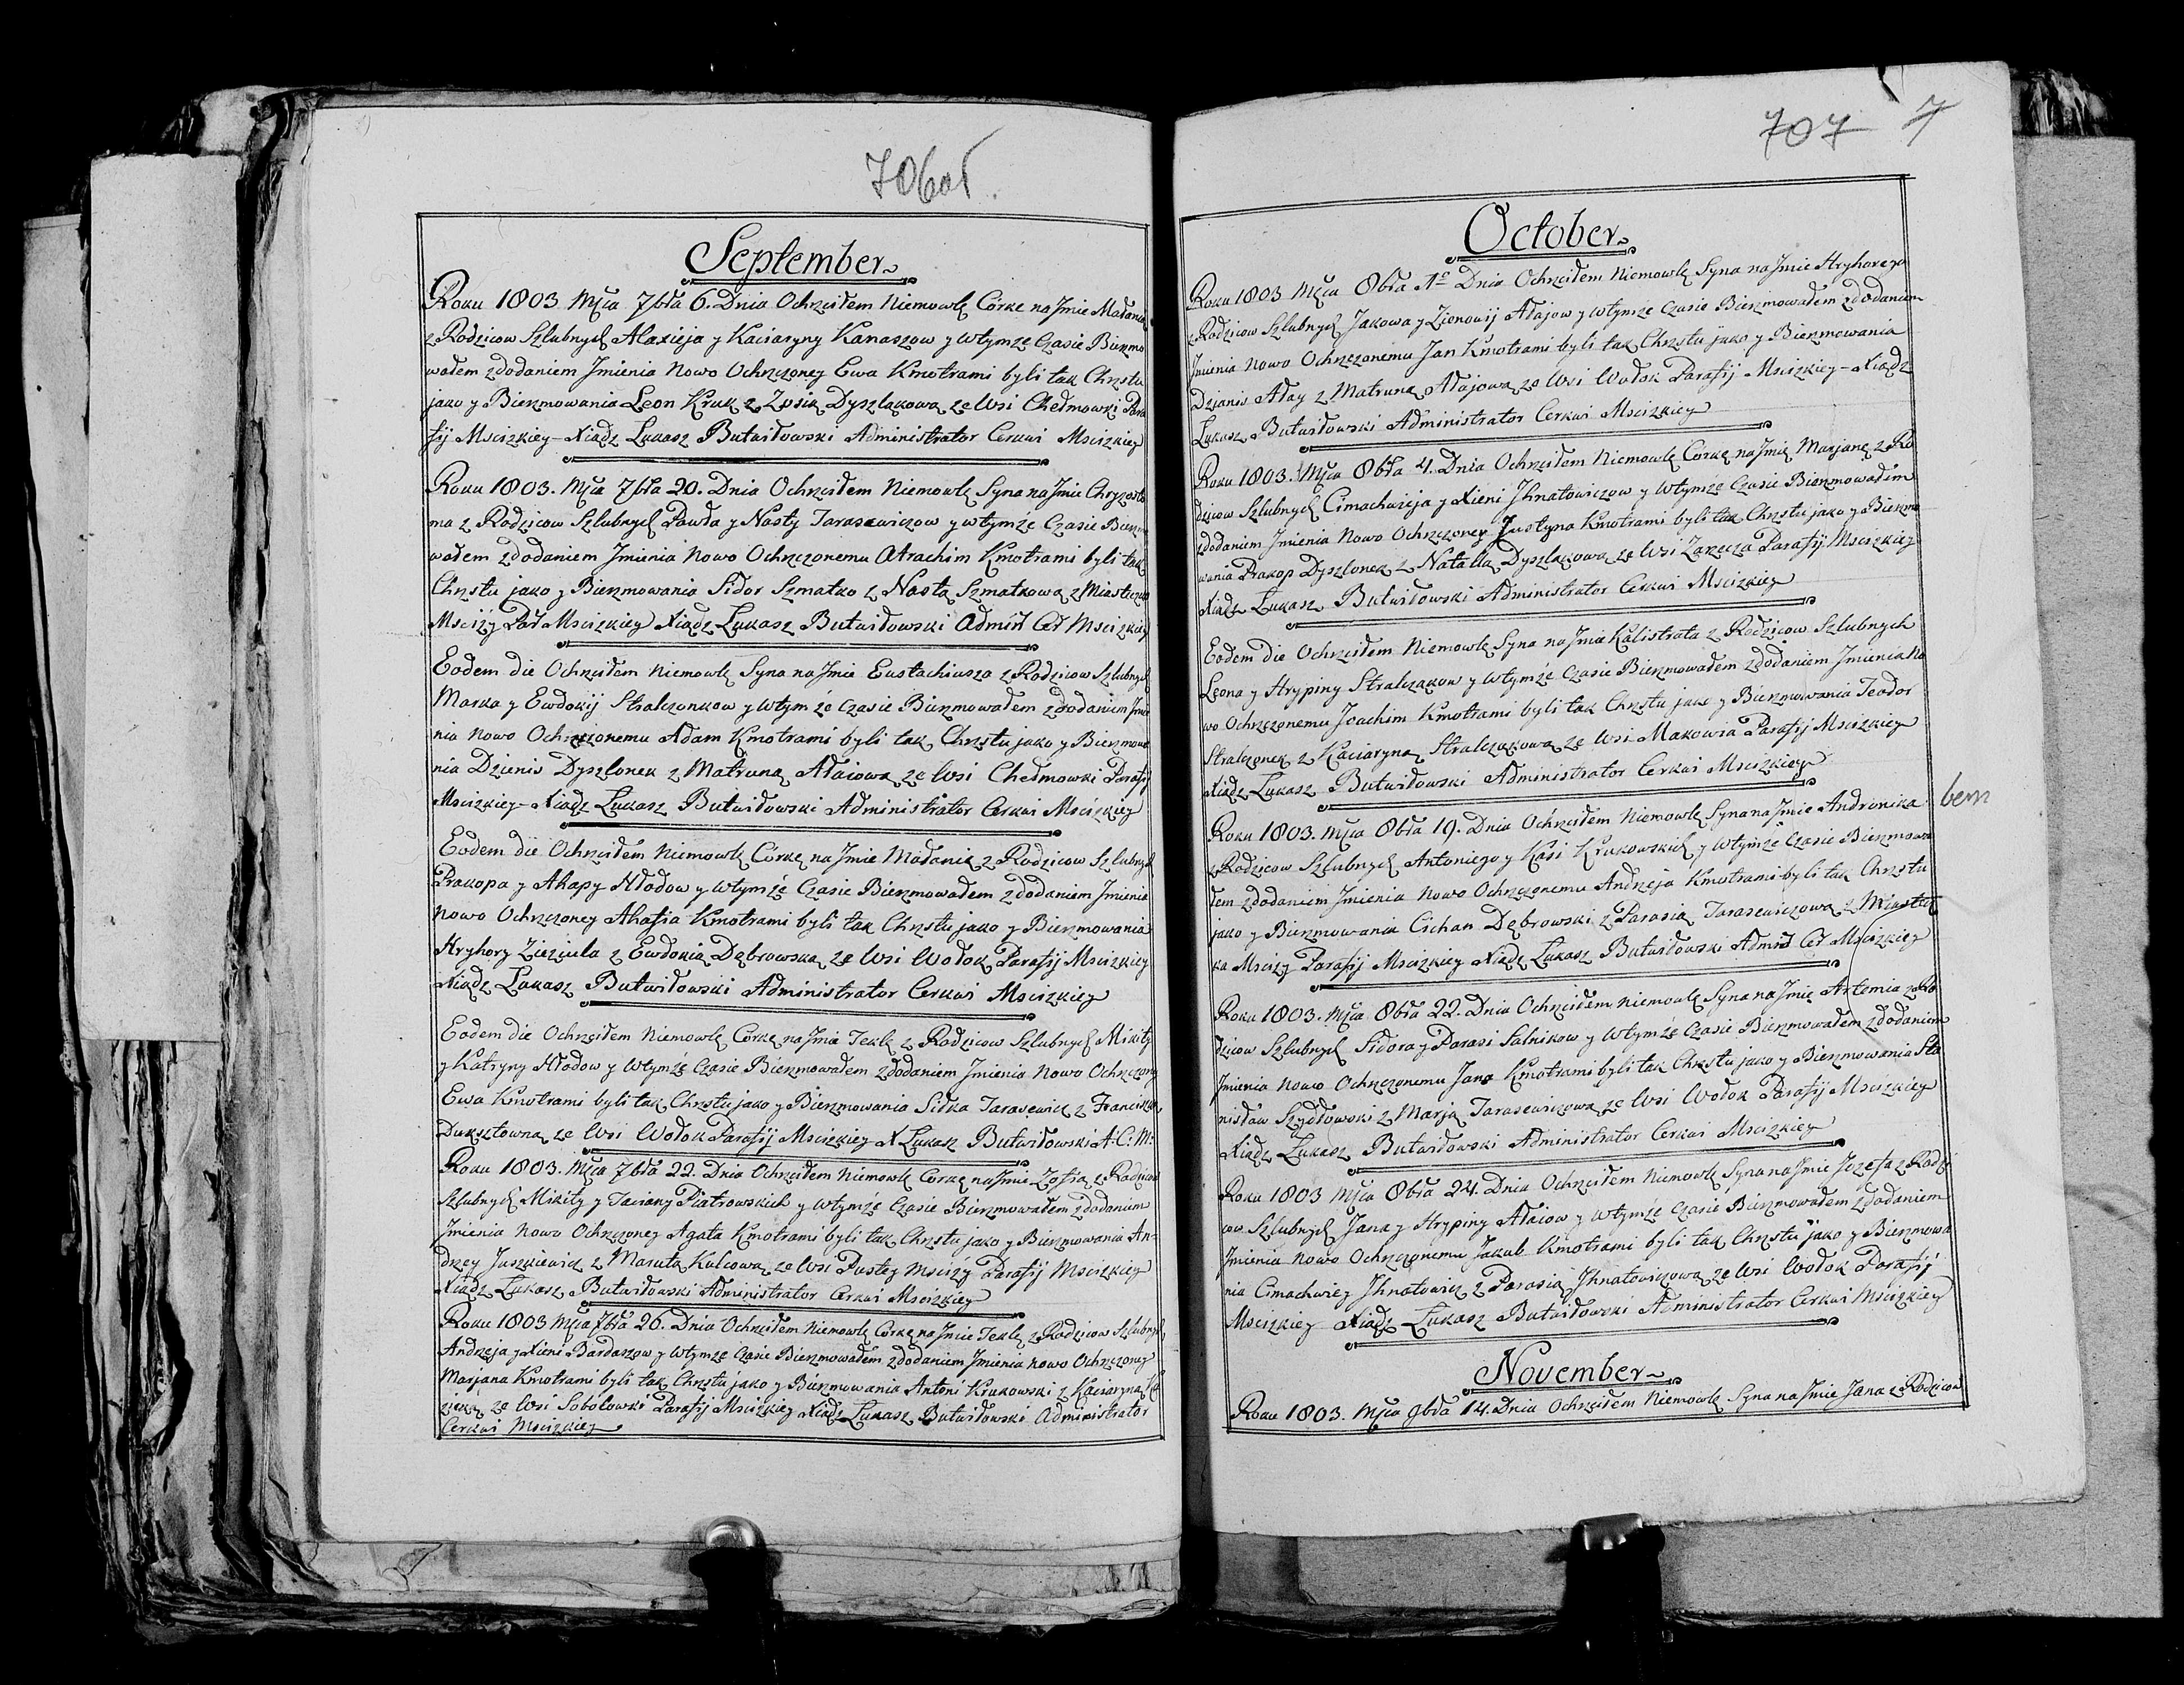 706об.
September
Roku 1803 Mśca 7bra 6. Dnia Ochrzciłem Niemowlę Corkę na Jmie Małanię
z Rodzicow Szlubnych Alaxieja y Kaciaryny Kanaszow y wtymże Czasie Bierzmo
wałem zdodaniem Jmienia Nowo Ochrzczoney Ewa Kmotrami byli tak Chrztu
jako y Bierzmowania Leon Kruk z Zosią Dyszląkową ze Wsi Chełmowki Para
fij Mscizkiey - Xiądz Łukasz Butwiłowski Administrator Cerkwi Mscizkiey
Roku 1803. Mśca 7bra 20. Dnia Ochrzciłem Niemowlę Syna na Jmie Chryzosto
ma z Rodzicow Szlubnych Pawła y Nasty Tarasewiczow y wtymże Czasie Bierzmo
wałem zdodaniem Jmienia Nowo Ochrzczonemu Atrachim Kmotrami byli tak
Chrztu jako y Bierzmowania Sidor Szmatko z Nastą Szmatkową z Miasteczka
Mscizy Par Mscizkiey Xiądz Łukasz Butwiłowski Admist Cer Mscizkiey
Eodem die Ochrzciłem Niemowlę Syna na Jmie Eustachiusza z Rodzicow Szlubnych
Marka y Ewdokij Stralczonkow y wtymże Czasie Bierzmowałem zdodaniem Jmie
nia Nowo Ochrzczonemu Adam Kmotrami byli tak Chrztu jako y Bierzmowa
nia Dzienis Dyszlonek z Matruną Ałaiową ze Wsi Chełmowki Parafij
Mscizkiey - Xiądz Łukasz Butwiłowski Administrator Cerkwi Mscizkiey
Eodem die Ochrzciłem Niemowlę Corkę na Jmie Małanię z Rodzicow Szlubnych
Prakopa y Ahapy Hłodow y wtymże Czasie Bierzmowałem zdodaniem Jmienia
Nowo Ochrzczoney Ahafia Kmotrami byli tak Chrztu jako y Bierzmowania
Hryhory Zieziula z Ewdokią Dąbrowską ze Wsi Wołok Parafij Mscizkiey
Xiądz Łukasz Butwiłowski Administrator Cerkwi Mscizkiey
Eodem die Ochrzciłem Niemowlę Corkę na Jmie Teklę z Rodzicow Szlubnych Mikity
y Katryny Hłodow y wtymże Czasie Bierzmowałem zdodaniem Jmienia Nowo Ochrzczoney
Ewa Kmotrami byli tak Chrztu jako y Bierzmowania Siłka Tarasewicz z Franciszką
Duksztowną ze Wsi Wołok Parafij Mscizkiey X Łukasz Butwiłowski A: C: M:
Roku 1803. Mśca 7bra 22. Dnia Ochrzciłem Niemowlę Corkę na Jmie Zofią z Rodzicow
Szlubnych Mikity y Taciany Piatrowskich y wtymże Czasie Bierzmowałem zdodaniem
Jmienia Nowo Ochrzczoney Agata Kmotrami byli tak Chrztu jako y Bierzmowania An=
drzey Juszkiewicz z Marutą Kulcową ze Wsi Pustey Mscizy Parafij Mscizkiey
Xiądz Łukasz Butwiłowski Administrator Cerkwi Mscizkiey
Roku 1803 Mśca 7bra 26. Dnia Ochrzciłem Niemowlę Corkę na Jmie Teklę z Rodzicow Szlubnych
Andrzeja y Xieni Bardaszow y wtymże Czasie Bierzmowałem zdodaniem Jmienia nowo Ochrzczoney
Marjana Kmotrami byli tak Chrztu jako y Bierzmowania Antoni Krukowski z Kaciaryną
ze Wsi Sobolowki Parafij Mscizkiey Xiądz Łukasz Butwiłowski Administrator
Cerkwi Mscizkiey
707 7
October
Roku 1803 Mśca 8bra 1o Dnia Ochrzciłem Niemowlę Syna na Jmie Hryhorego
z Rodzicow Szlubnych Jakowa y Zienowij Ałajow y wtymże Czasie Bierzmowałem zdodaniem
Jmienia Nowo Ochrzczonemu Jan Kmotrami byli tak Chrztu jako y Bierzmowania
Dzianis Ałay z Matruną Ałajową ze Wsi Wołok Parafij Mscizkiey - Xiądz
Łukasz Butwiłowski Administrator Cerkwi Mscizkiey
Roku 1803. Mśca 8bra 4. Dnia Ochrzciłem Niemowlę Corkę na Jmię Marjanę z Ro
dzicow Szlubnych Cimachwieja y Xieni Jhnatowiczow y wtymże Czasie Bierzmowałem
zdodaniem Jmienia Nowo Ochrzczoney Justyna Kmotrami byli tak Chrztu jako y Bierzmo
wania Prakop Dyszlonek z Natallą Dyszlakową ze Wsi Zarzecza Parafij Mscizkiey
Xiądz Łukasz Butwiłowski Administrator Cerkwi Mscizkiey
Eodem die Ochrzciłem Niemowlę Syna na Jmie Kalistrata z Rodzicow Szlubnych
Leona y Hrypiny Stralczakow y wtymże Czasie Bierzmowałem zdodaniem Jmienia No
wo Ochrzczonemu Joachim Kmotrami byli tak Chrztu jako y Bierzmowania Teodor
Stralczonek z Kaciaryną Stralczakową ze Wsi Makowia Parafij Mscizkiey
Xiądz Łukasz Butwiłowski Administrator Cerkwi Mscizkiey
Roku 1803. Mśca 8bra 19. Dnia Ochrzciłem Niemowlę Syna na Jmie Andronika
z Rodzicow Szlubnych Antoniego y Kasi Krukowskich y wtymże Czasie Bierzmowa
łem zdodaniem Jmienia Nowo Ochrzczonemu Andrzeja Kmotrami byli tak Chrztu
jako y Bierzmowania Cichan Dąbrowski z Parasią Tarasewiczową z Miastecz
ka Mscizy Parafij Mscizkiey Xiądz Łukasz Butwiłowski Admist Cer Mscizkiey
Roku 1803. Mśca 8bra 22. Dnia Ochrzciłem Niemowlę Syna na Jmię Artemia z Ro
dzicow Szlubnych Sidora y Parasi Salnikow y wtymże Czasie Bierzmowałem zdodaniem
Jmienia Nowo Ochrzczonemu Jana Kmotrami byli tak Chrztu jako y Bierzmowania Sta
nisław Szydłowski z Marją Tarasewiczową ze Wsi Wołok Parafij Mscizkiey
Xiądz Łukasz Butwiłowski Administrator Cerkwi Mscizkiey
Roku 1803 Mśca 8bra 24. Dnia Ochrzciłem Niemowlę Syna na Jmie Jozefa z Rodzi
cow Szlubnych Jana y Hrypiny Ałaiow y wtymże Czasie Bierzmowałem zdodaniem
Jmienia Nowo Ochrzczonemu Jakub Kmotrami byli tak Chrztu jako y Bierzmowa
nia Cimachwiey Jhnatowicz z Parasią Jhnatowiczową ze Wsi Wołok Parafij
Mscizkiey Xiądz Łukasz Butwiłowski Administrator Cerkwi Mscizkiey
November
Roku 1803. Mśca 9bra 14. Dnia Ochrzciłem Niemowlę Syna na Jmie Jana z Rodzicow